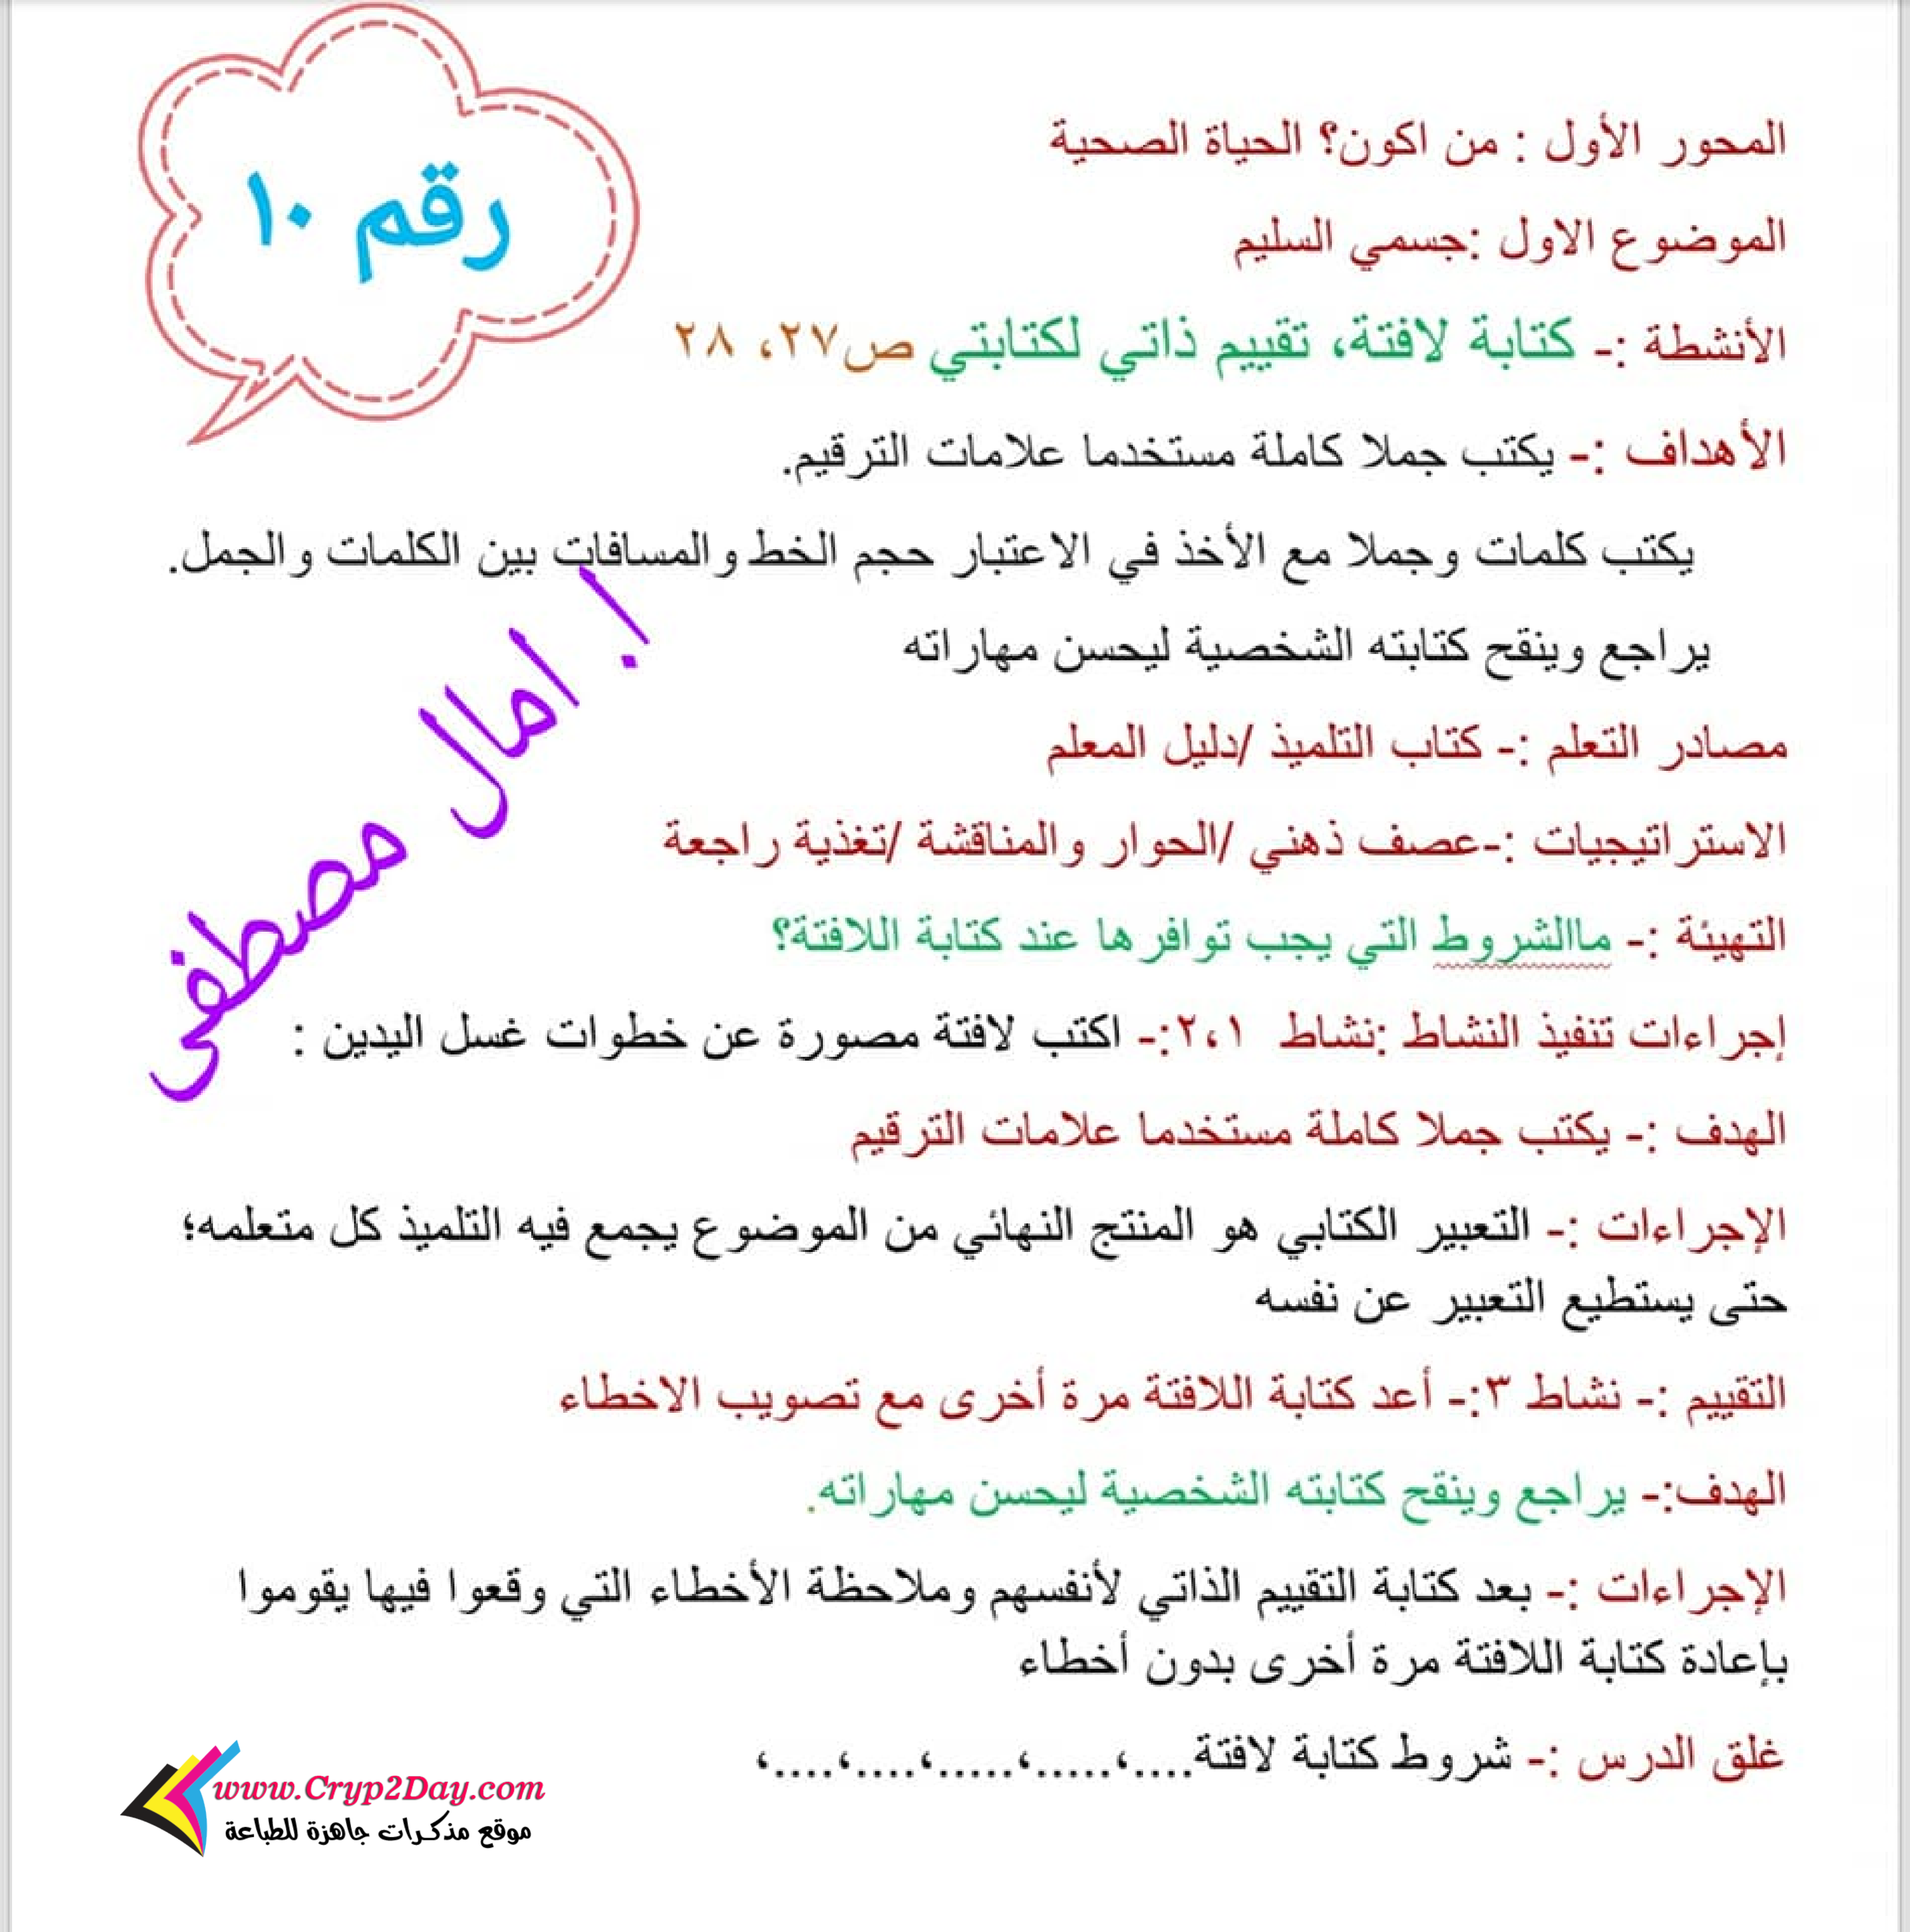 رقم ١٠
المحور الأول : من اكون؟ الحياة الصحية
الموضوع الاول :جسمي السليم
الأنشطة :- كتابة لافتة، تقييم ذاتي لكتابتي ص٢٧، ٢٨
الأهداف :- يكتب جملا كاملة مستخدما علامات الترقيم.
يكتب كلمات وجملا مع الأخذ في الاعتبار حجم الخط والمسافات بين الكلمات والجمل.
يراجع وينقح كتابته الشخصية ليحسن مهاراته
ا. امال مصطفى
مصادر التعلم :- كتاب التلميذ /دليل المعلم
الاستراتيجيات :-عصف ذهني /الحوار والمناقشة /تغذية راجعة
التهيئة :- ماالشروط التي يجب توافرها عند كتابة اللافتة؟
إجراءات تنفيذ النشاط :نشاط ٢،١:- اكتب لافتة مصورة عن خطوات غسل اليدين :
الهدف :- يكتب جملا كاملة مستخدما علامات الترقيم
الإجراءات :- التعبير الكتابي هو المنتج النهائي من الموضوع يجمع فيه التلميذ كل متعلمه؛
حتى يستطيع التعبير عن نفسه
التقييم :- نشاط ٣:- أعد كتابة اللافتة مرة أخرى مع تصويب الاخطاء
الهدف:- يراجع وينقح كتابته الشخصية ليحسن مهاراته.
الإجراءات :- بعد كتابة التقييم الذاتي لأنفسهم وملاحظة الأخطاء التي وقعوا فيها يقوموا
بإعادة كتابة اللافتة مرة أخرى بدون أخطاء
غلق الدرس :- شروط كتابة لافتة....،.....،.....،....،....،
www.Cryp2Day.com
موقع مذكرات جاهزة للطباعة